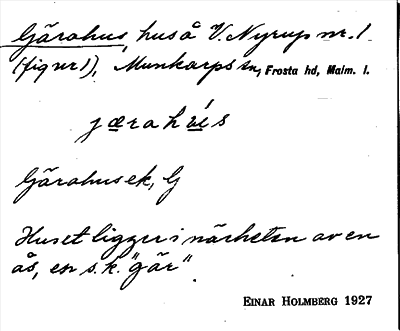 Gärahus, hus å V. Nyrup nr. 1
(figur 1), Munkarps sn, Frosta hd, Malm. l.
jærahúis
Gärahusek, G
Huset ligger i närheten av en
ås, en s.k. "gär".
EINAR HOLMBERG 1927